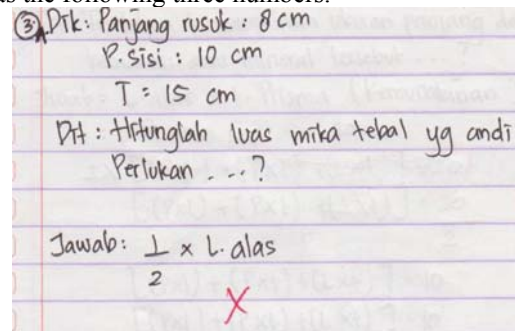 as the following three numbers.
③ Dik : Panjang rusuk : 8 cm
P. sisi : 10 cm
T = 15 cm
Dit : Hitunglah luas mika tebal yg andi
Perlukan ...?
Jawab : 1/2 × L. alas
X